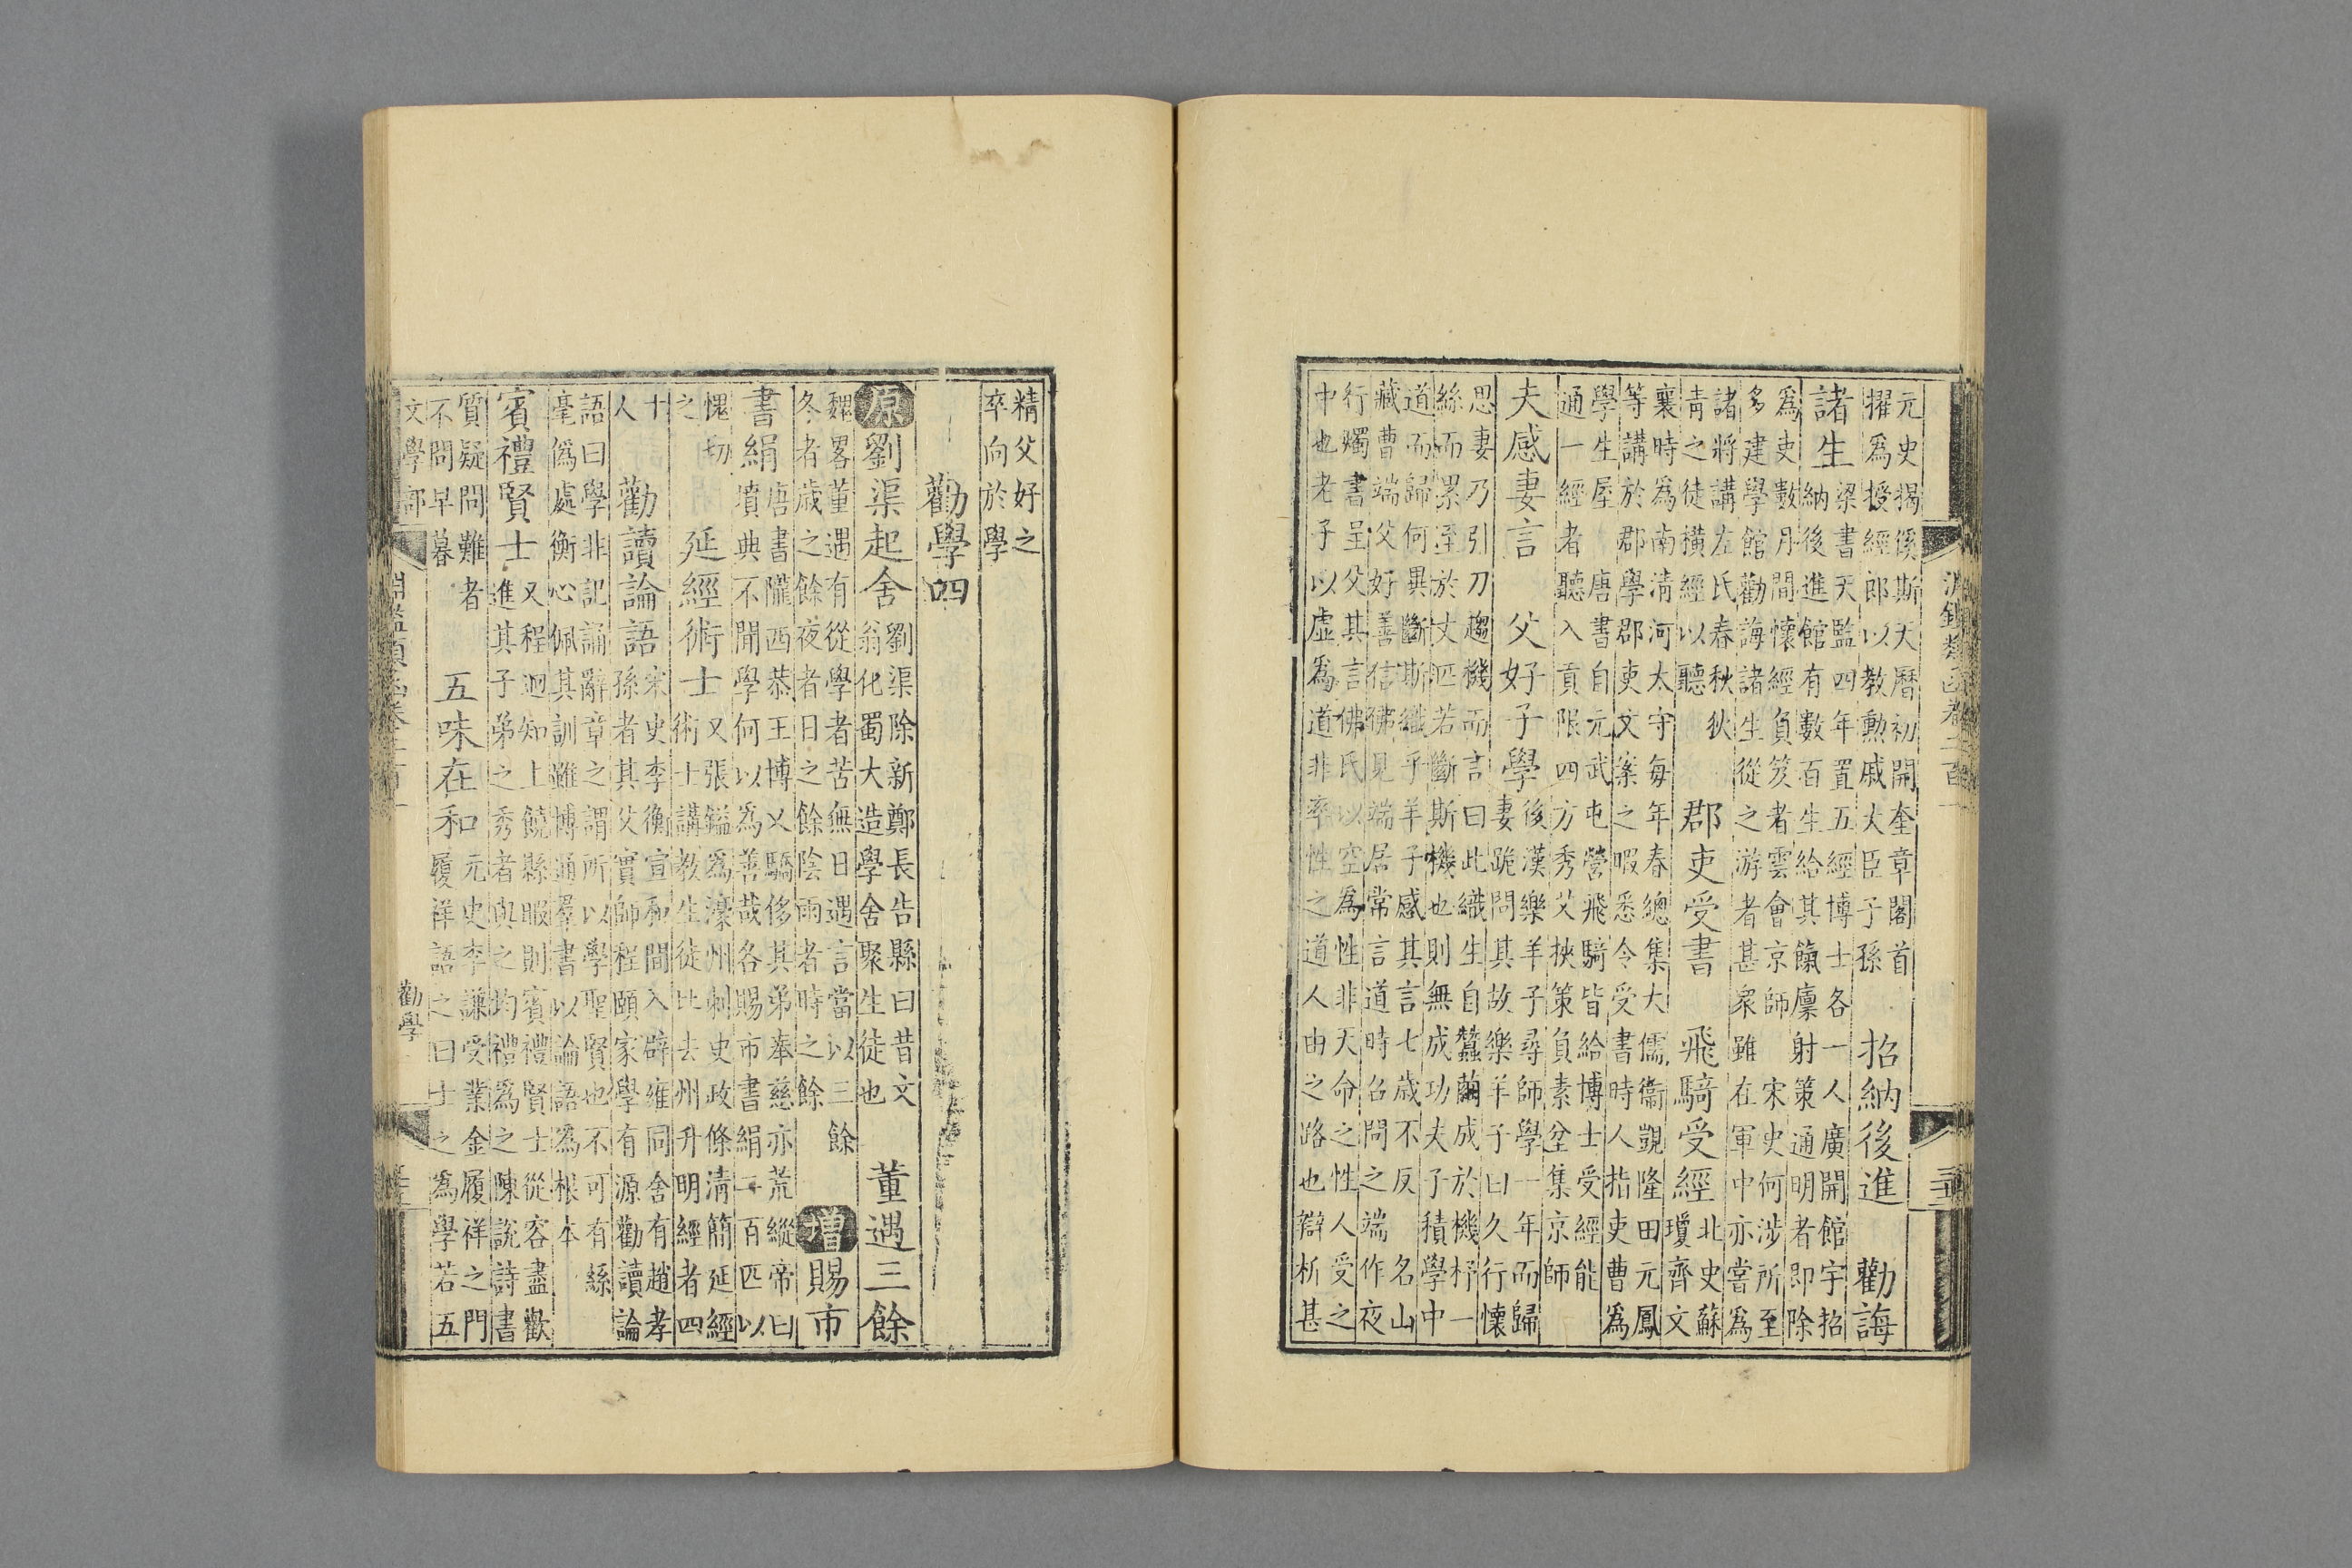 元史揭傒斯天曆初開奎章閣首
擢爲授經郎以教勳戚大臣子孫
招納後進
勸誨
諸生
梁書天監四年置五經博士各一人廣開館宇招
納後進館有數百生給其餼廩射策通明者即除
爲吏數月間懷經負笈者雲會京師
宋史何涉所至
多建學館勸誨諸生從之游者甚衆雖在軍中亦嘗爲
諸將講左氏春秋狄
青之徒橫經以聽
郡吏受書
飛騎受經
北史蘇
瓊齊文
襄時爲南清河太守每年春總集大儒衞覬隆田元鳳
等講於郡學郡吏文案之暇悉令受書時人指吏曹爲
學生屋
唐書自元武屯營飛騎皆給博士受經能
通一經者聽入貢限四方秀艾挾策負素坌集京師
夫感妻言
父好子學
後漢樂羊子尋師學一年而歸
妻跪問其故樂羊子曰久行懷
思妻乃引刀趨機而言曰此織生自蠶繭成於機杼一
絲而累至於丈匹若斷斯機也則無成功夫子積學中
道而歸何異斷斯織乎羊子感其言七歲不反
名山
藏曹端父好善信佛見端居常言道時召問之端作夜
行燭書呈父其言佛氏以空爲性非天命之性人受之
中也老子以虛爲道非率性之道人由之路也辯析甚
精父好之
卒向於學
勸學四
原
劉渠起舍
劉渠除新鄭長告縣曰昔文
翁化蜀大造學舍聚生徒也
董遇三餘
魏畧董遇有從學者苦無日遇言當以三餘
冬者歲之餘夜者日之餘陰雨者時之餘
增
賜市
書絹
唐書隴西恭王博乂驕侈其弟奉慈亦荒縱帝曰
墳典不聞學何以爲善哉各賜市書絹二百匹以
愧切
之
延經術士
又張鎰爲濠州刺史政條清簡延經
術士講教生徒比去州升明經者四
十
人
勸讀論語
宋史李衡宣和間入辟雍同舍有趙孝
孫者其父實師程頤家學有源勸讀論
語曰學非記誦辭章之謂所以學聖賢也不可有絲
毫僞處衡心佩其訓雖博通羣書以論語爲根本
賓禮賢士
又程迥知上饒縣暇則賓禮賢士從容盡歡
進其子弟之秀者與之均禮爲之陳說詩書
質疑問難者
不問早暮
五味在和
元史李謙受業金履祥之門
履祥語之曰士之為學若五
文學部
淵鑑類函卷二百一
勸學